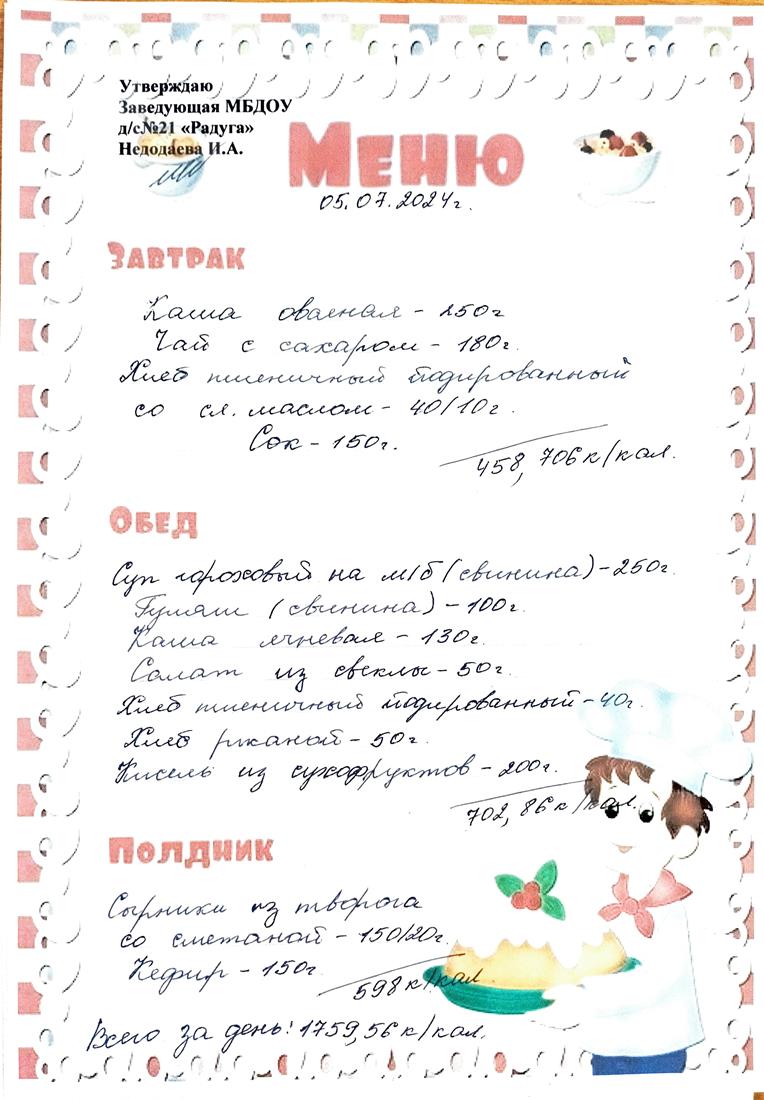 Утверждаю
Заведующая МБДОУ
д/с№21 «Радуга»
Недодаева И.А.
Меню
05.07.2024г.
Завтрак
Каша овсяная - 250г
Чай с сахаром - 180г.
Хлеб пшеничный йодированный
со сл. маслом - 40/10г.
Сок - 150г.
458,706к/кал.
Обед
Суп гороховый на м/б (свинина) - 250г.
Гуляш (свинина) - 100г.
Каша ячневая - 130г.
Салат из свеклы - 50г.
Хлеб пшеничный йодированный - 40г.
Хлеб ржаной - 50г.
Кисель из сухофруктов - 200г.
702,86к/кал.
Полдник
Сырники из творога
со сметаной - 150/20г.
Кефир - 150г.
598к/кал
Всего за день: 1759,56к/кал.